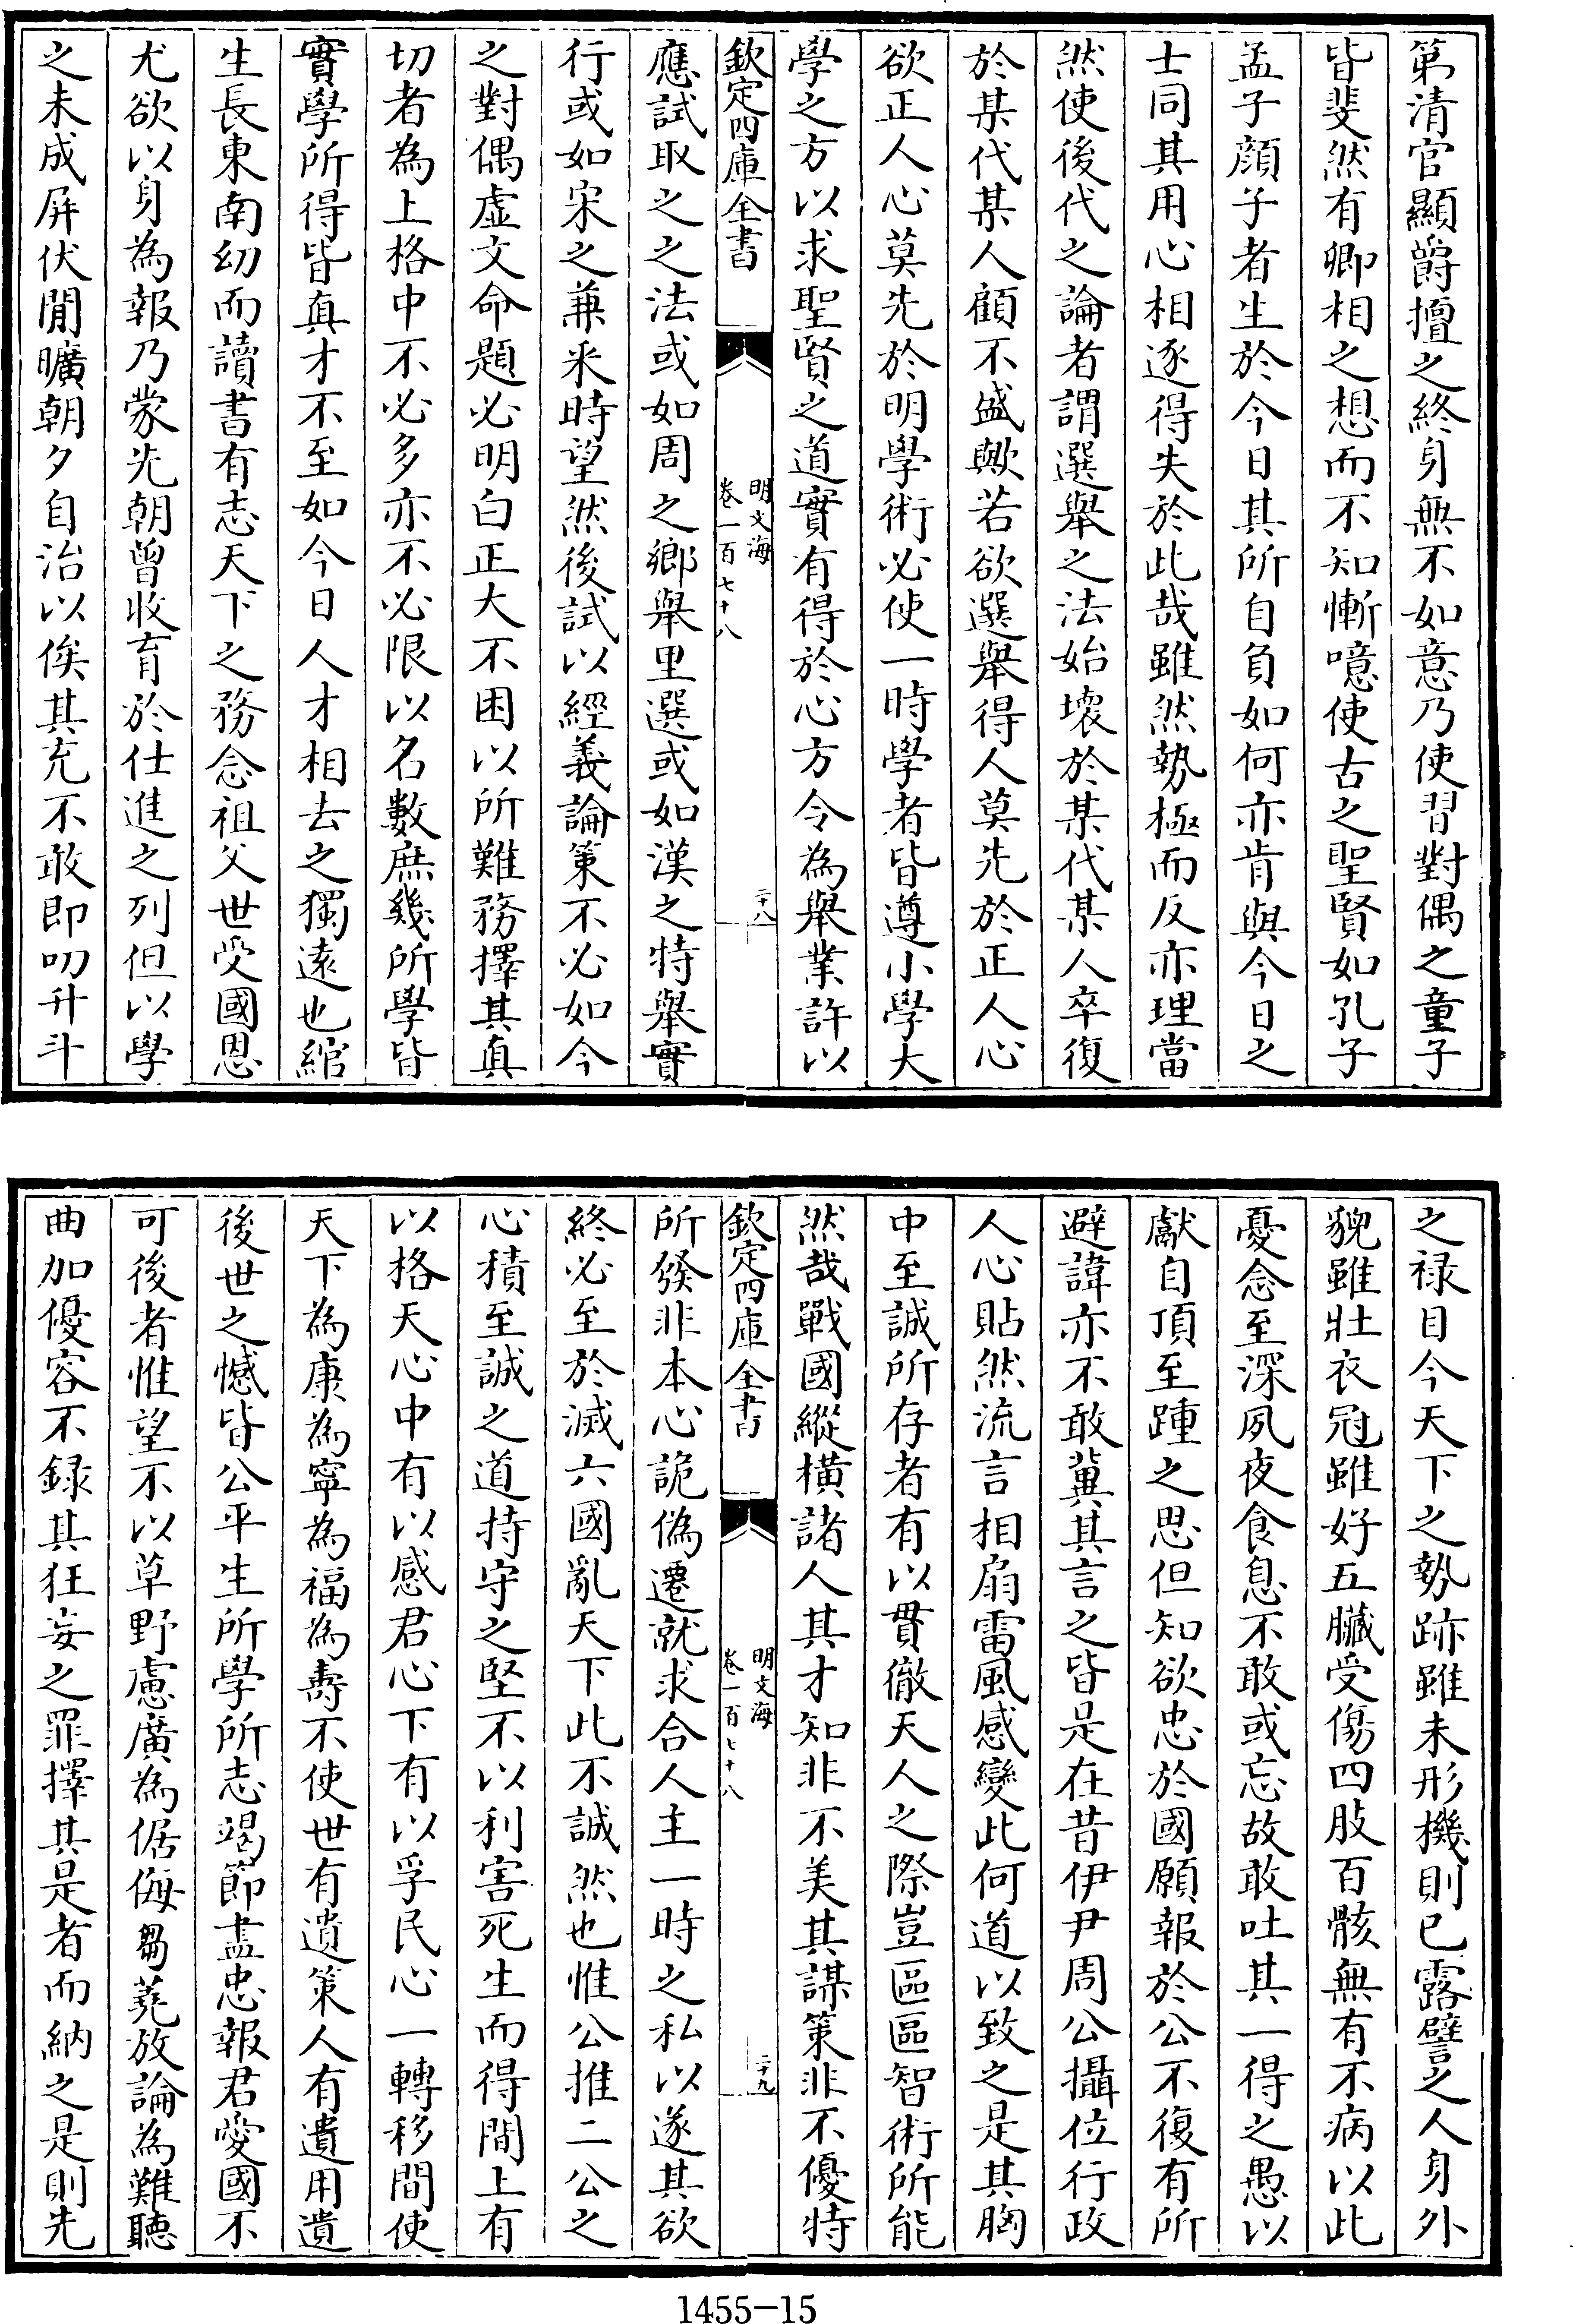 第清官顯爵擅之終身無不如意乃使習對偶之童子
皆斐然有卿相之想而不知慚噫使古之聖賢如孔子
孟子顔子者生於今日其所自負如何亦肯與今日之
士同其用心相逐得失於此哉雖然勢極而反亦理當
然使後代之論者謂選舉之法始壞於某代某人卒復
於某代某人顧不盛歟若欲選舉得人莫先於正人心
欲正人心莫先於明學術必使一時學者皆遵小學大
學之方以求聖賢之道實有得於心方令為舉業許以
欽定四庫全書
明文海
卷一百七十八
二十八
應試取之之法或如周之鄉舉里選或如漢之特舉實
行或如宋之兼采時望然後試以經義論策不必如今
之對偶虛文命題必明白正大不困以所難務擇其真
切者為上格中不必多亦不必限以名數庶幾所學皆
實學所得皆真才不至如今日人才相去之獨遠也綰
生長東南幼而讀書有志天下之務念祖父世受國恩
尤欲以身為報乃蒙先朝曾收育於仕進之列但以學
之未成屏伏閒曠朝夕自治以俟其充不敢即叨升斗
之祿目今天下之勢跡雖未形機則已露譬之人身外
貌雖壯衣冠雖好五臟受傷四肢百骸無有不病以此
憂念至深夙夜食息不敢或忘故敢吐其一得之愚以
獻自頂至踵之思但知欲忠於國願報於公不復有所
避諱亦不敢冀其言之皆是在昔伊尹周公攝位行政
人心貼然流言相扇雷風感變此何道以致之是其胸
中至誠所存者有以貫徹天人之際豈區區智術所能
然哉戰國縱橫諸人其才知非不美其謀策非不優特
欽定四庫全書
明文海
卷一百七十八
二十九
所發非本心詭偽遷就求合人主一時之私以遂其欲
終必至於滅六國亂天下此不誠然也惟公推二公之
心積至誠之道持守之堅不以利害死生而得間上有
以格天心中有以感君心下有以孚民心一轉移間使
天下為康為寧為福為壽不使世有遺策人有遺用遺
後世之憾皆公平生所學所志竭節盡忠報君愛國不
可後者惟望不以草野慮廣為倨侮芻蕘放論為難聽
曲加優容不錄其狂妄之罪擇其是者而納之是則先
1455-15